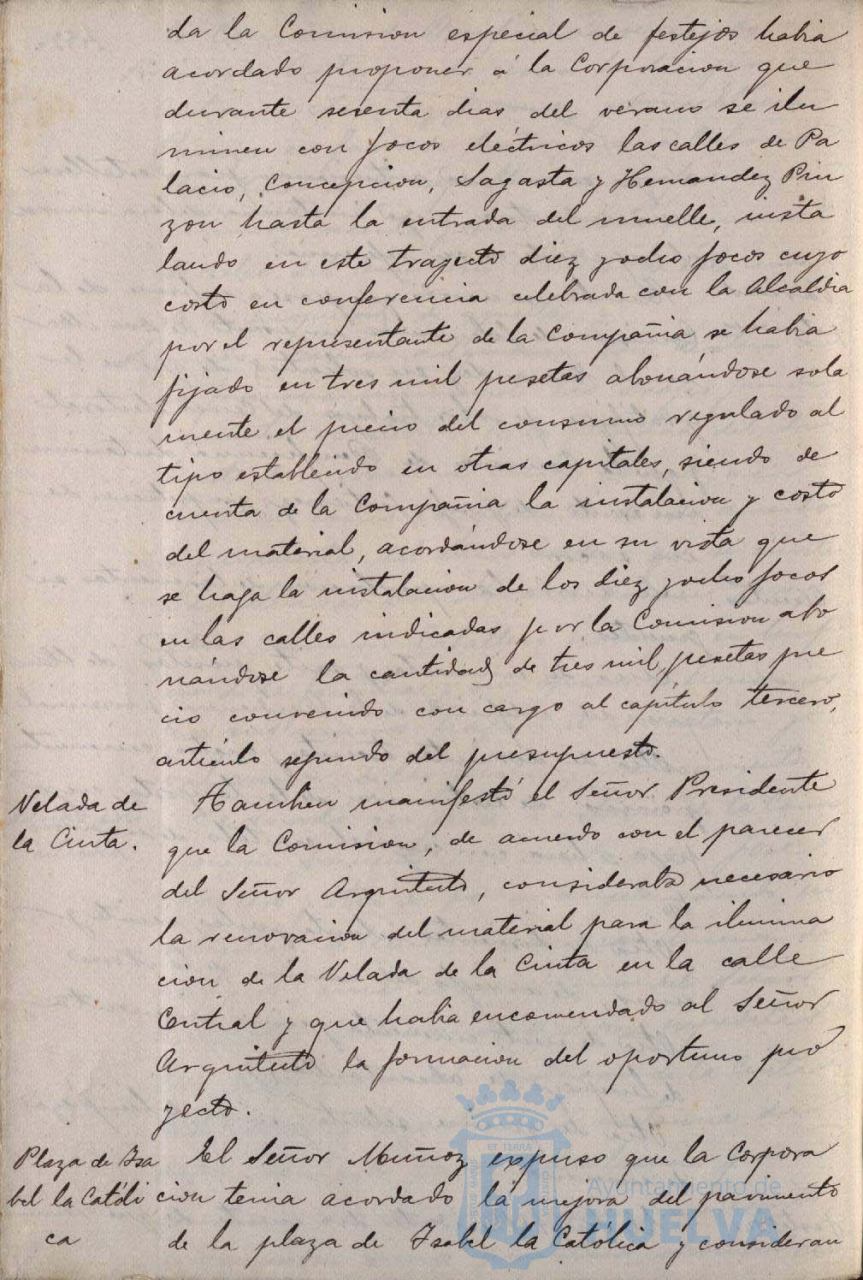 da la Comision especial de festejos habia
acordado proponer á la Corporacion que
durante sesenta dias del verano se ilu
minen con focos eléctricos las calles de Pa
lacio, Concepcion, Sagasta y Hernandez Pin
zon hasta la entrada del muelle, insta
lando en este trayecto diez y ocho focos cuyo
costo en conferencia celebrada con la Alcaldia
por el representante de la Compañia se habia
fijado en tres mil pesetas abonándose sola
mente el precio del consumo regulado al
tipo establecido en otras capitales, siendo de
cuenta de la Compañia la instalacion y costo
del material, acordándose en su vista que
se haga la instalacion de los diez y ocho focos
en las calles indicadas por la Comision abo
nándose la cantidad de tres mil pesetas pre
cio convenido con cargo al capítulo tercero,
artículo segundo del presupuesto.
Velada de
la Cinta.
Tambien manifestó el Señor Presidente
que la Comision, de acuerdo con el parecer
del Señor Arquitecto, consideraba necesario
la renovacion del material para la ilumina
cion de la Velada de la Cinta en la calle
Central y que habia encomendado al Señor
Arquitecto la formacion del oportuno pro
yecto.
Plaza de Isa
bel la Católi
ca
El Señor Muñoz expuso que la Corpora
cion tenia acordado la mejora del pavimento
de la plaza de Isabel la Católica y consideran
Ayuntamiento de
HUELVA